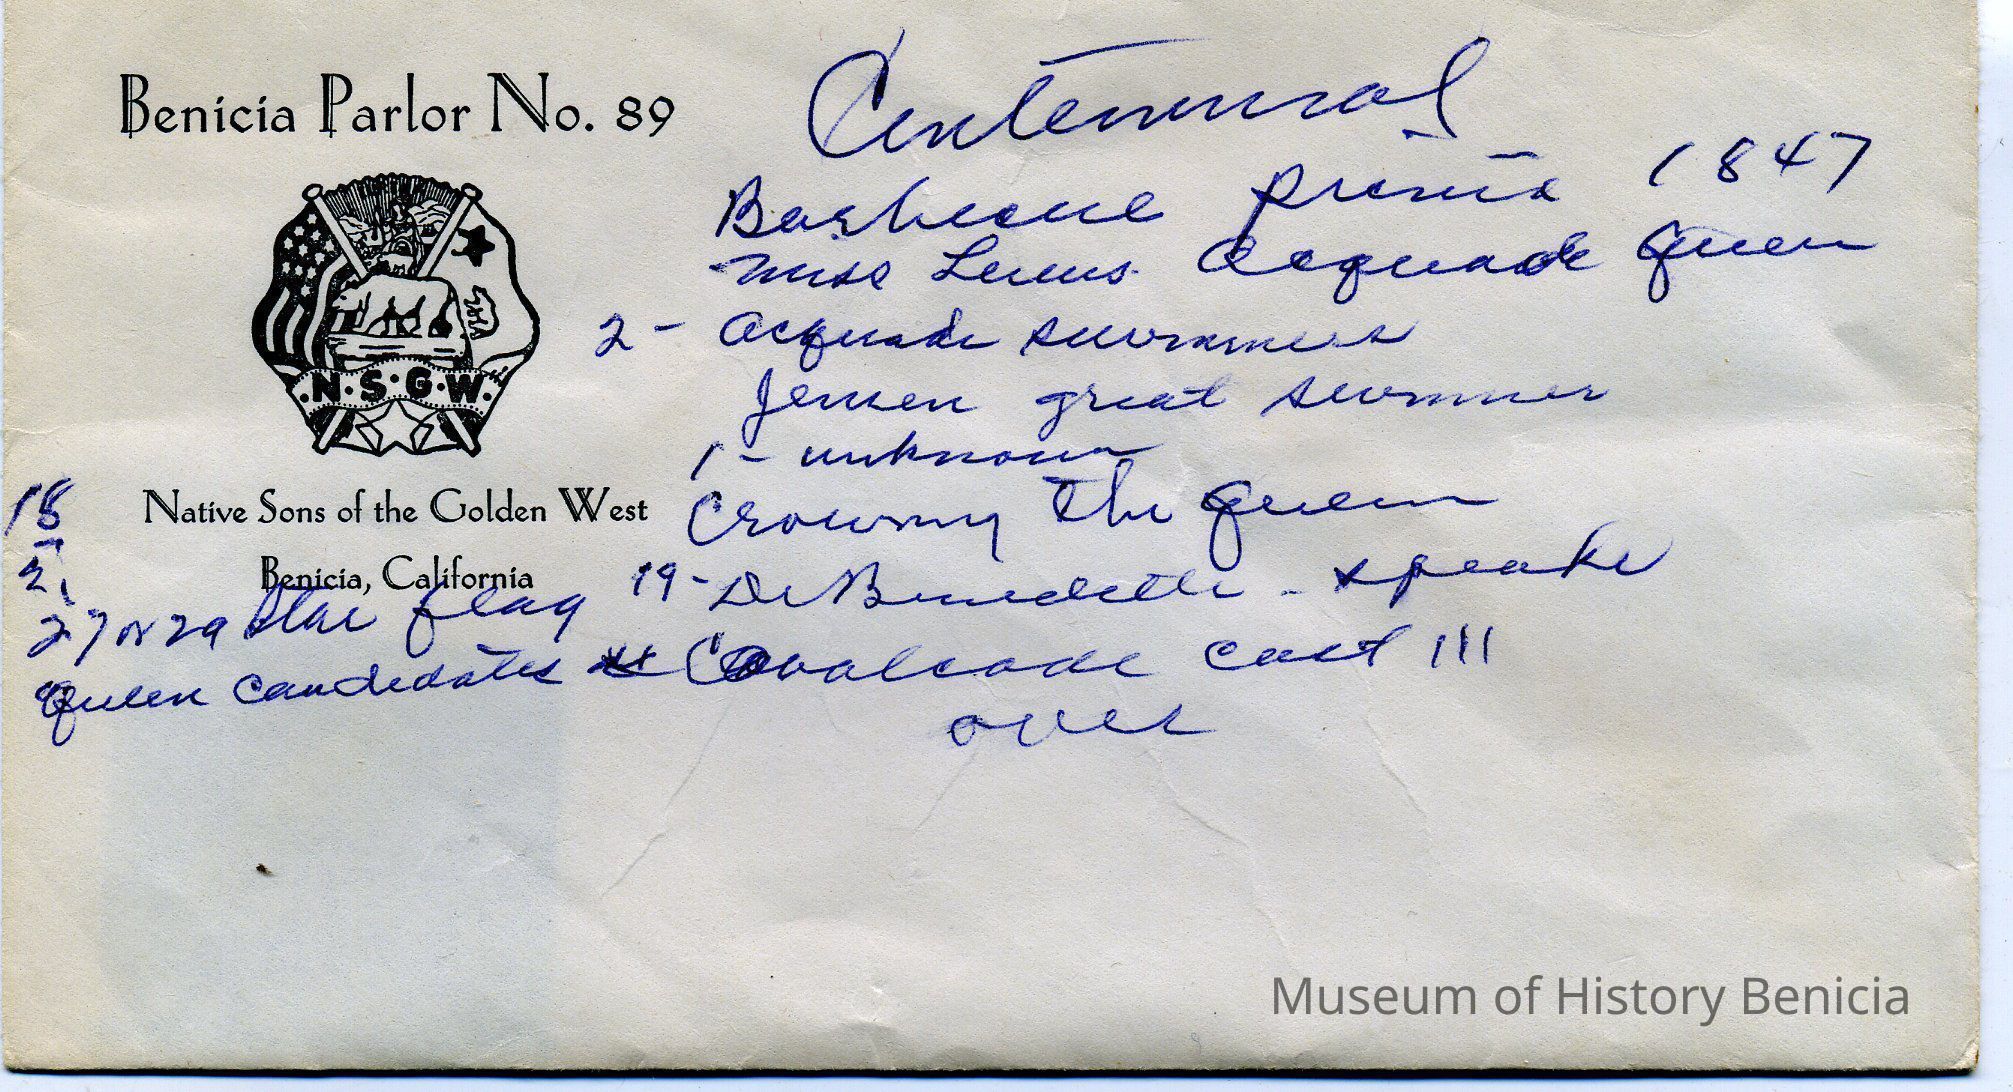 Benicia Parlor No. 89
N·S·G·W·
Native Sons of the Golden West
Benicia, California
Centennial
Barbecue 1847
Miss Acquade Queen
2 - Acquade swimmers
Jensen great swimmer
1 - unknown
Crowning the Queen
19 - De Benedetti - speaks
Cavalcade cast 111
over
18
2,
27 or 29 star flag
Queen candidates
Museum of History Benicia